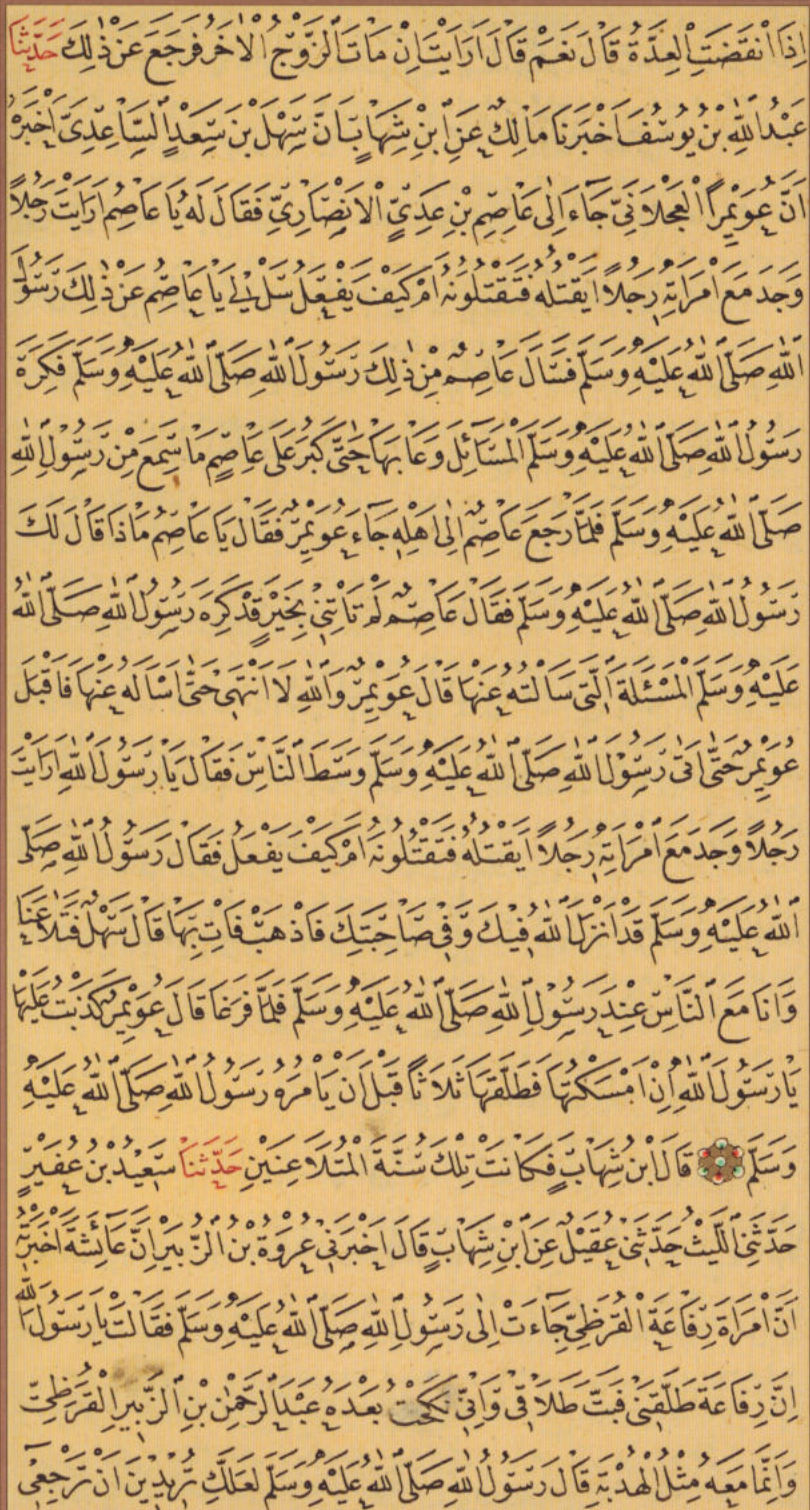 اِذَا انْقَضَتِ الْعِدَّةُ قَالَ نَعَمْ قَالَ اَرَاَيْتَ اِنْ مَاتَ الزَّوْجُ الْاٰخَرُ فَرَجَعَ عَنْ ذٰلِكَ حَدَّثَنَا
عَبْدُ اللّٰهِ بْنُ يُوسُفَ اَخْبَرَنَا مَالِكٌ عَنِ ابْنِ شِهَابٍ اَنَّ سَهْلَ بْنَ سَعْدٍ السَّاعِدِىَّ اَخْبَرَهُ
اَنَّ عُوَيْمِرًا الْعَجْلَانِىَّ جَاءَ اِلٰى عَاصِمِ بْنِ عَدِىٍّ الْاَنْصَارِىِّ فَقَالَ لَهُ يَا عَاصِمُ اَرَاَيْتَ رَجُلًا
وَجَدَ مَعَ امْرَاَتِهِ رَجُلًا اَيَقْتُلُهُ فَتَقْتُلُونَهُ اَمْ كَيْفَ يَفْعَلُ سَلْ لِى يَا عَاصِمُ عَنْ ذٰلِكَ رَسُولَ
اللّٰهِ صَلَّى اللّٰهُ عَلَيْهِ وَسَلَّمَ فَسَاَلَ عَاصِمٌ مِنْ ذٰلِكَ رَسُولَ اللّٰهِ صَلَّى اللّٰهُ عَلَيْهِ وَسَلَّمَ فَكَرِهَ
رَسُولُ اللّٰهِ صَلَّى اللّٰهُ عَلَيْهِ وَسَلَّمَ الْمَسَائِلَ وَعَابَهَا حَتّٰى كَبُرَ عَلٰى عَاصِمٍ مَا سَمِعَ مِنْ رَسُولِ اللّٰهِ
صَلَّى اللّٰهُ عَلَيْهِ وَسَلَّمَ فَلَمَّا رَجَعَ عَاصِمٌ اِلٰى اَهْلِهِ جَاءَ عُوَيْمِرٌ فَقَالَ يَا عَاصِمُ مَاذَا قَالَ لَكَ
رَسُولُ اللّٰهِ صَلَّى اللّٰهُ عَلَيْهِ وَسَلَّمَ فَقَالَ عَاصِمٌ لَمْ تَاْتِنِى بِخَيْرٍ قَدْ كَرِهَ رَسُولُ اللّٰهِ صَلَّى اللّٰهُ
عَلَيْهِ وَسَلَّمَ الْمَسْئَلَةَ الَّتِى سَاَلْتُهُ عَنْهَا قَالَ عُوَيْمِرٌ وَاللّٰهِ لَا اَنْتَهِى حَتّٰى اَسْاَلَهُ عَنْهَا فَاَقْبَلَ
عُوَيْمِرٌ حَتّٰى اَتٰى رَسُولَ اللّٰهِ صَلَّى اللّٰهُ عَلَيْهِ وَسَلَّمَ وَسَطَ النَّاسِ فَقَالَ يَا رَسُولَ اللّٰهِ اَرَاَيْتَ
رَجُلًا وَجَدَ مَعَ امْرَاَتِهِ رَجُلًا اَيَقْتُلُهُ فَتَقْتُلُونَهُ اَمْ كَيْفَ يَفْعَلُ فَقَالَ رَسُولُ اللّٰهِ صَلَّى
اللّٰهُ عَلَيْهِ وَسَلَّمَ قَدْ اَنْزَلَ اللّٰهُ فِيكَ وَفِى صَاحِبَتِكَ فَاذْهَبْ فَاْتِ بِهَا قَالَ سَهْلٌ فَتَلَاعَنَا
وَاَنَا مَعَ النَّاسِ عِنْدَ رَسُولِ اللّٰهِ صَلَّى اللّٰهُ عَلَيْهِ وَسَلَّمَ فَلَمَّا فَرَغَا قَالَ عُوَيْمِرٌ كَذَبْتُ عَلَيْهَا
يَا رَسُولَ اللّٰهِ اِنْ اَمْسَكْتُهَا فَطَلَّقَهَا ثَلَاثًا قَبْلَ اَنْ يَاْمُرَهُ رَسُولُ اللّٰهِ صَلَّى اللّٰهُ عَلَيْهِ
وَسَلَّمَ قَالَ ابْنُ شِهَابٍ فَكَانَتْ تِلْكَ سُنَّةَ الْمُتَلَاعِنَيْنِ حَدَّثَنَا سَعِيدُ بْنُ عُفَيْرٍ
حَدَّثَنِى اللَّيْثُ حَدَّثَنِى عُقَيْلٌ عَنِ ابْنِ شِهَابٍ قَالَ اَخْبَرَنِى عُرْوَةُ بْنُ الزُّبَيْرِ اَنَّ عَائِشَةَ اَخْبَرَتْهُ
اَنَّ امْرَاَةَ رِفَاعَةَ الْقُرَظِىِّ جَاءَتْ اِلٰى رَسُولِ اللّٰهِ صَلَّى اللّٰهُ عَلَيْهِ وَسَلَّمَ فَقَالَتْ يَا رَسُولَ اللّٰهِ
اِنَّ رِفَاعَةَ طَلَّقَنِى فَبَتَّ طَلَاقِى وَاِنِّى نَكَحْتُ بَعْدَهُ عَبْدَ الرَّحْمٰنِ بْنَ الزَّبِيرِ الْقُرَظِىَّ
وَاِنَّمَا مَعَهُ مِثْلُ الْهُدْبَةِ قَالَ رَسُولُ اللّٰهِ صَلَّى اللّٰهُ عَلَيْهِ وَسَلَّمَ لَعَلَّكِ تُرِيدِينَ اَنْ تَرْجِعِى